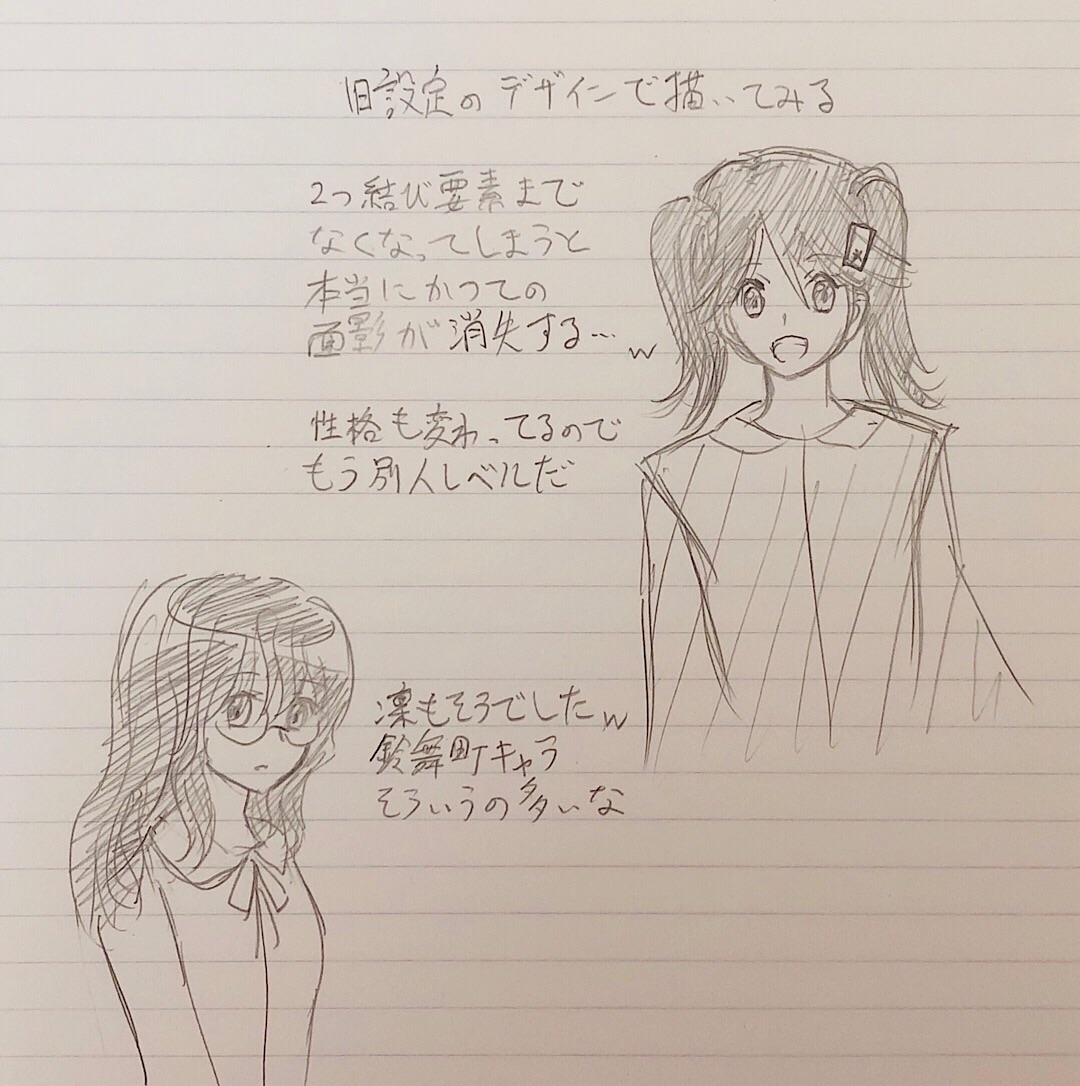 旧設定のデザインで描いてみる
2つ結び要素まで
なくなってしまうと
本当にかつての
面影が消失する…w
性格も変わってるので
もう別人レベルだ
凜もそうでしたw
鈴舞町キャラ
そういうの多いな